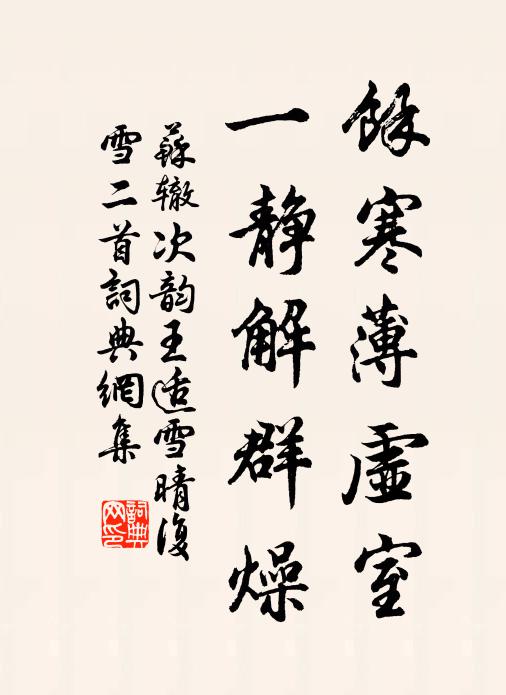 餘寒薄虛室
一靜解群燥
蘇辙次韵王适雪晴復
雪二首詞典網集
詞典网印